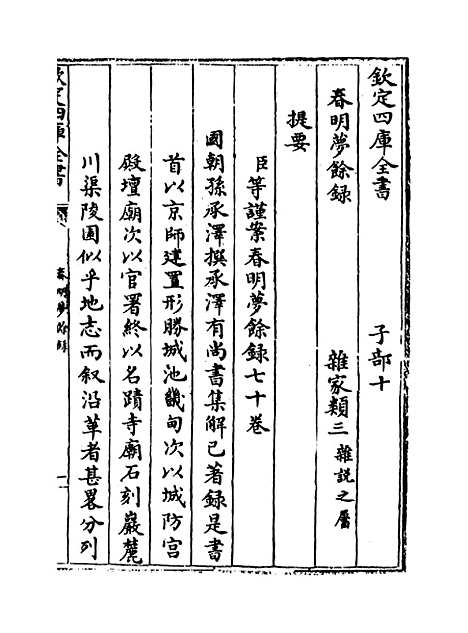 欽定四庫全書　子部十
春明夢餘録　雜家類三 雜說之屬
提要
臣等謹案春明夢餘録七十卷
國朝孫承澤撰承澤有尚書集解已著録是書
首以京師建置形勝城池畿甸次以城防宫
殿壇廟次以官署終以名蹟寺廟石刻巖麓
川渠陵園似乎地志而叙沿革者甚畧分列
欽定四庫全書
春明夢餘録
一